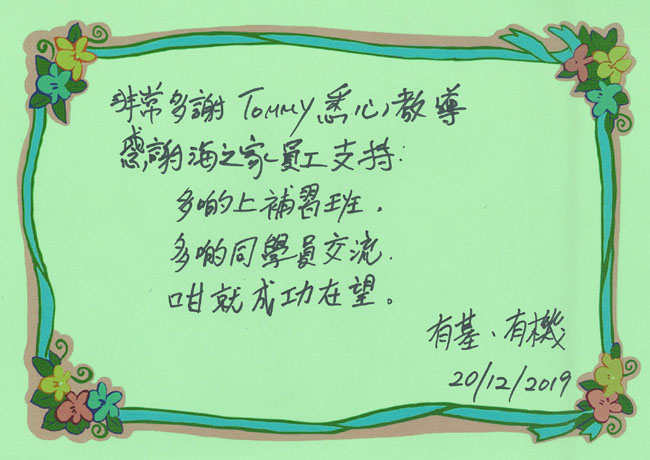 非常多謝 TOMMY 悉心教導
感謝海之家員工支持:
多啲上補習班.
多啲同學員交流.
咁就成功在望。
有基、有機
20/12/2019